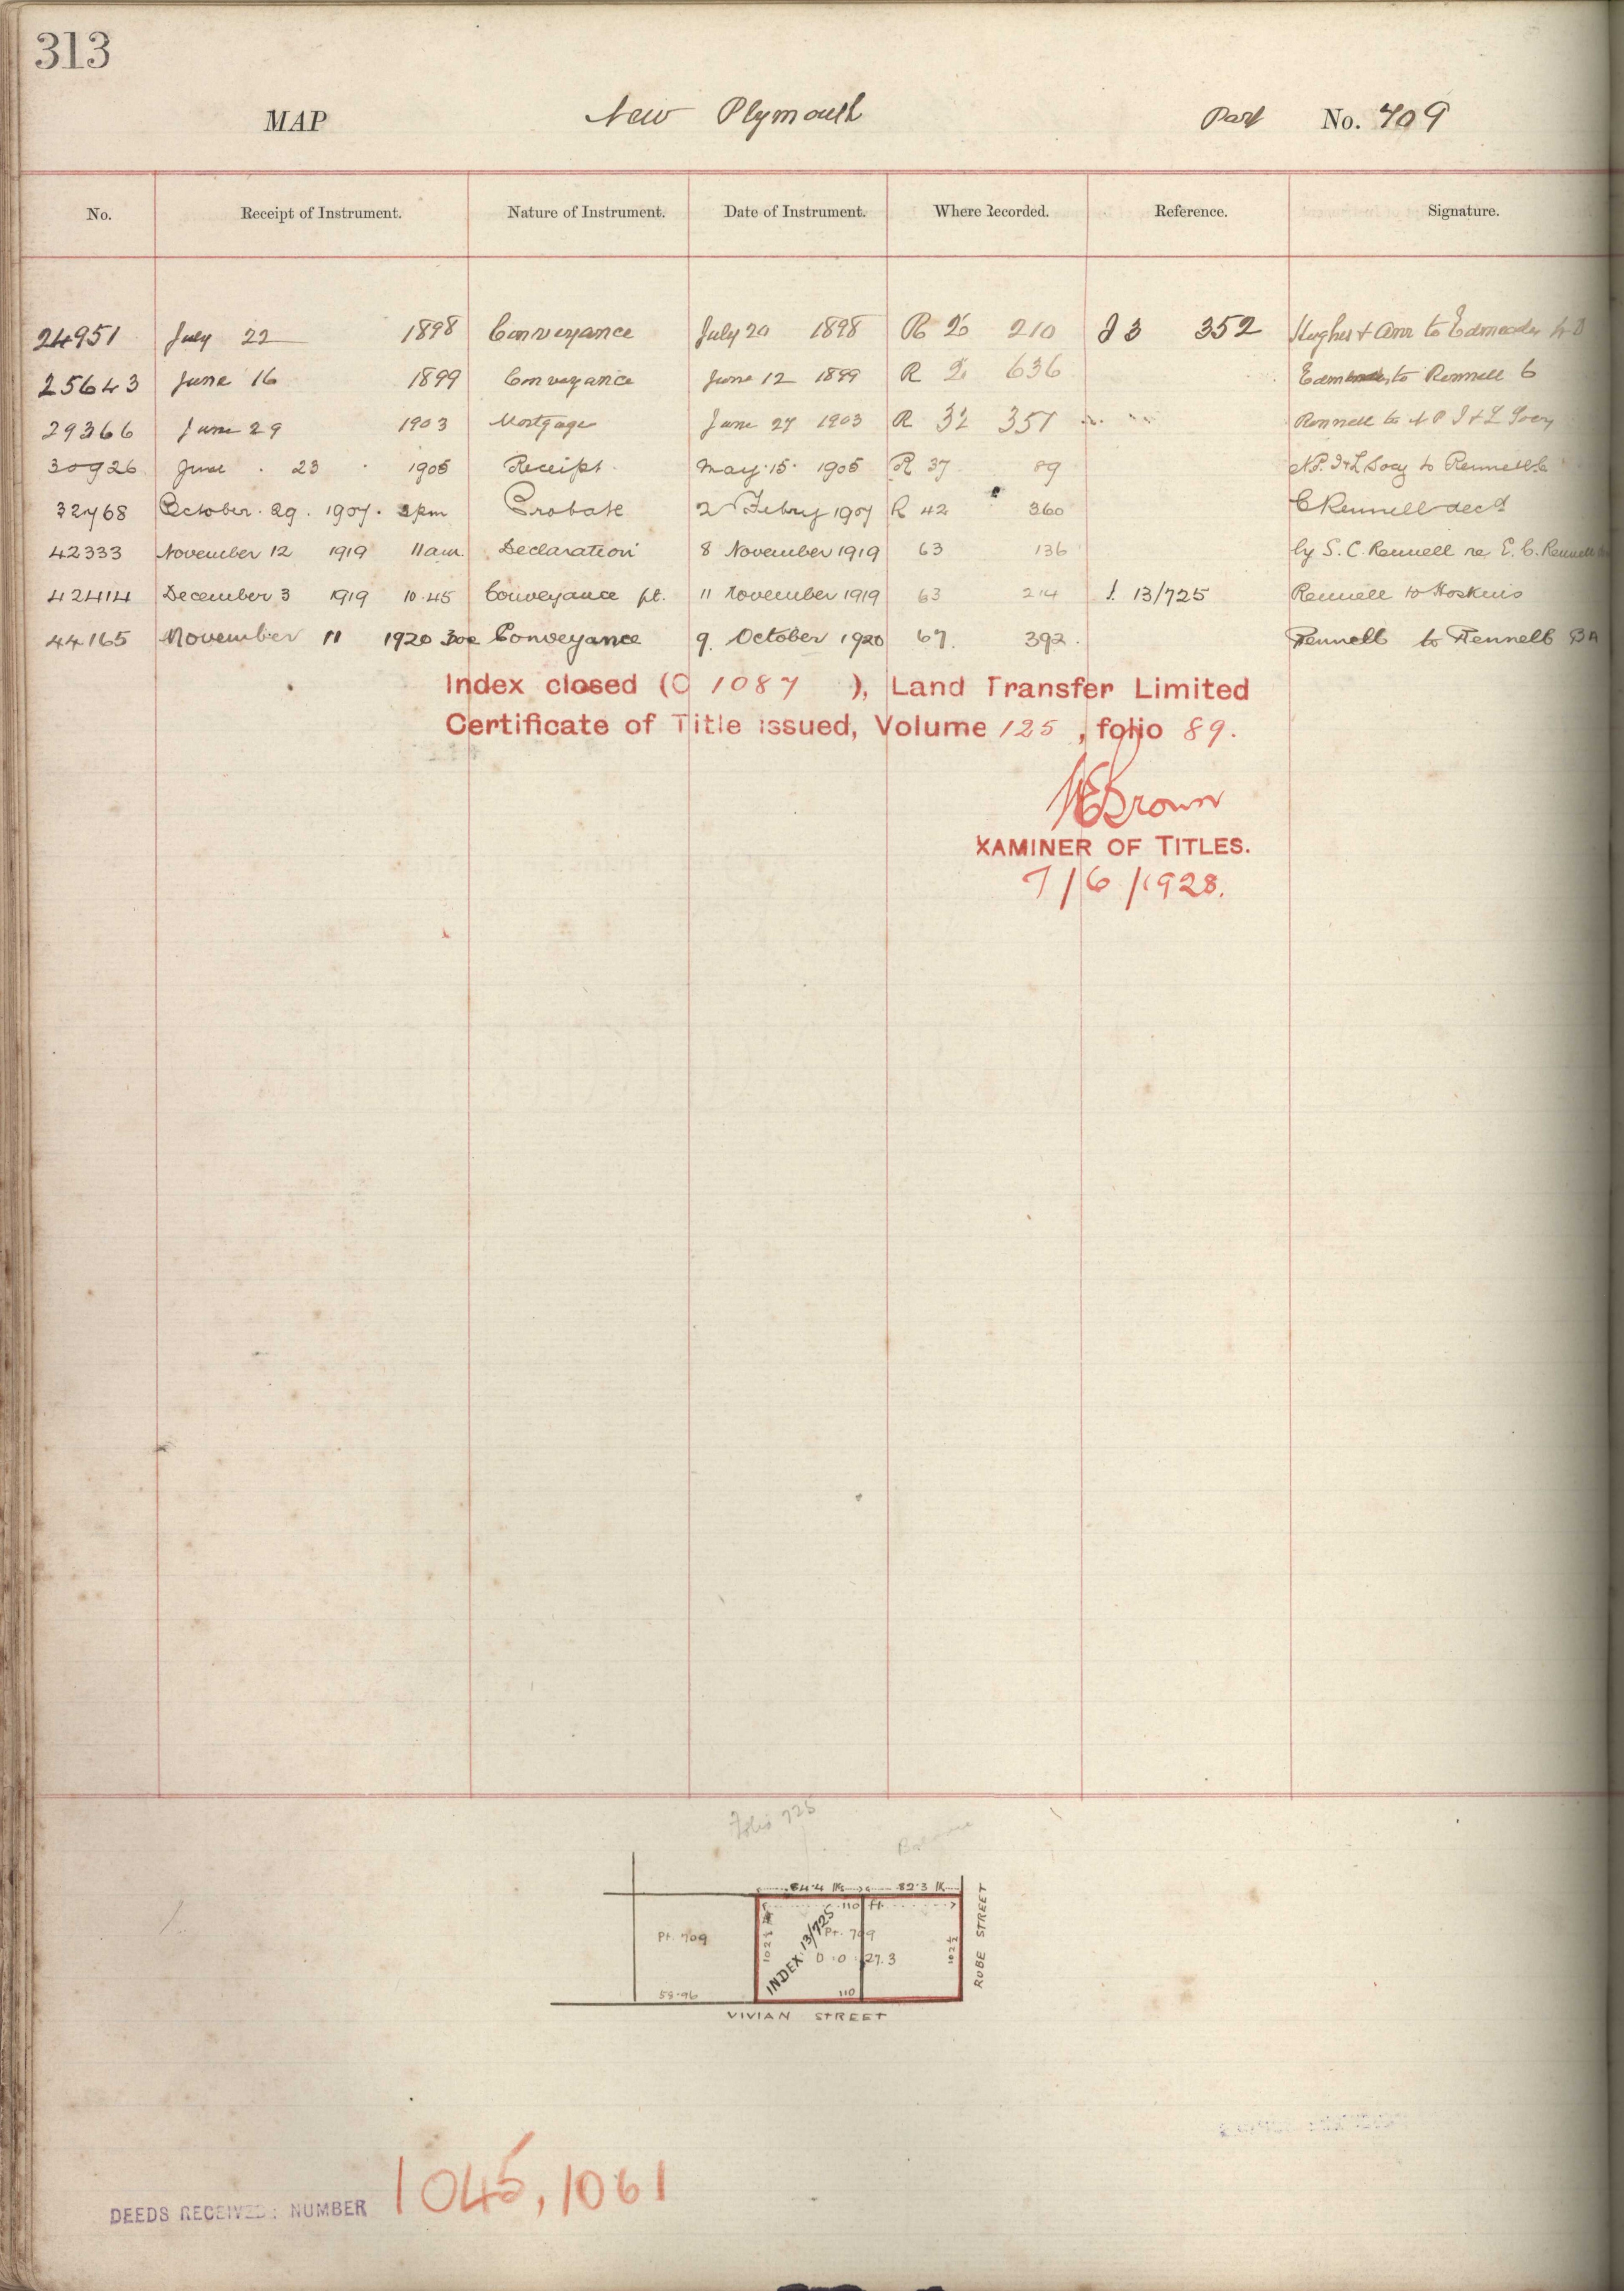 313
MAP New Plymouth Part No. 709
No. Receipt of Instrument. Nature of Instrument. Date of Instrument. Where Recorded. Reference. Signature.
24951 July 22 1898 Conveyance July 20 1898 R 26 210 I 3 352 Hughes & Anr to
25643 June 16 1899 Conveyance June 12 1899 R 636 to Rennell C
29366 June 29 1903 Mortgage June 27 1903 R 32 351 Rennell to N P I & L Socy
30926 June 23 1905 Receipt May 15 1905 R 37 89 N.P. I & L Socy to Rennell C
32768 October 29. 1907. 2pm Probate 2 Febry 1907 R 42 360 C Rennell decd
42333 November 12 1919 11am. Declaration 8 November 1919 63 136 by S. C. Rennell re E. C. Rennell
42414 December 3 1919 10.45 Conveyance pt. 11 November 1919 63 214 I. 13/725 Rennell to Hoskins
44165 November 11 1920 Conveyance 9. October 1920 67. 392. Rennell to Rennell BA
Index closed (C 1087 ), Land Transfer Limited
Certificate of Title issued, Volume 125, folio 89.
Brown
XAMINER OF TITLES.
7/6/1928.
Folio 725
Balance
64.4 lks 82.3 lk
110 ft
Pt. 709 INDEX 13/725 Pt. 709 102½ ROBE STREET
0.0.27.3
58.96 110
VIVIAN STREET
DEEDS RECEIVED: NUMBER 1045, 1061